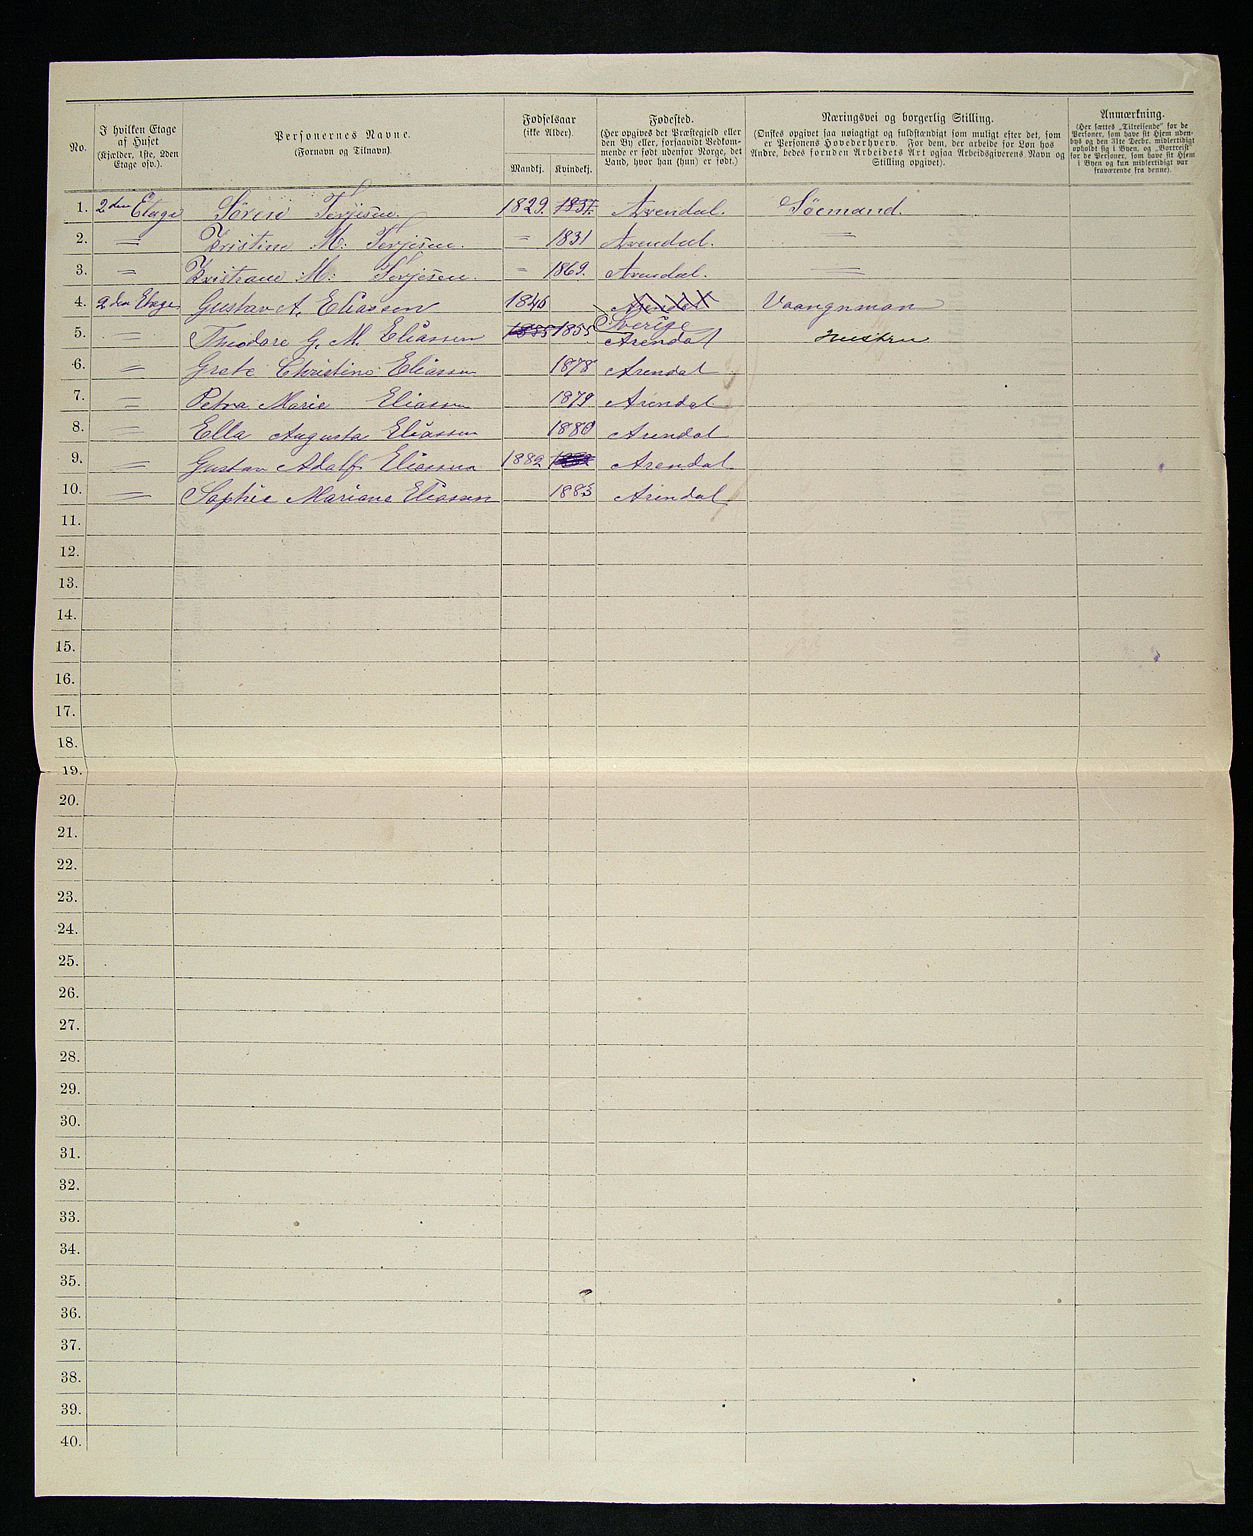 No.
I hvilken Etage
af Huset
(Kjælder, 1ste, 2den
Etage osv.).
Personernes Navne.
(Fornavn og Tilnavn).
Fødselsaar
(ikke Alder).
Mandkj.
Kvindekj.
Fødested.
(Her opgives det Præstegjeld eller
den By eller, forsaavidt Vedkom-
mende er født udenfor Norge, det
Land, hvor han (hun) er født.)
Næringsvei og borgerlig Stilling.
(Ønskes opgivet saa nøiagtigt og fuldstændigt som muligt efter det, som
er Personens Hovederhverv. For dem, der arbeide for Løn hos
Andre, bedes foruden Arbeidets Art ogsaa Arbeidsgiverens Navn og
Stilling opgivet).
Anmærkning.
(Her sættes „Tilreisende“ for de
Personer, som have sit Hjem uden-
bys og den 31te Decbr. midlertidigt
opholdt sig i Byen, og „Bortreist“
for de Personer, som have sit Hjem
i Byen og kun midlertidigt var
fraværende fra denne).
1. 2den Etage Søren Terjesen. 1829. 1831. Arendal. Söemand.
2. — Kristine M: Terjesen. - 1831 Arendal. —
3. — Kristiane M: Terjesen. - 1869. Arendal. —
4. 2den Etage Gustav A. Eliassen 1846 Arendal Sverige Vaangnman
5. — Theodore G. M. Eliassen 1855 1855 Arendal Hustru
6. — Grete Christine Eliassen 1878 Arendal
7. — Petra Marie Eliassen 1879 Arendal
8. — Ella Augusta Eliassen 1880 Arendal
9. — Gustav Adalf Eliassen 1882 Arendal
10. — Sophie Mariane Eliassen 1883 Arendal
11.
12.
13.
14.
15.
16.
17.
18.
19.
20.
21.
22.
23.
24.
25.
26.
27.
28.
29.
30.
31.
32.
33.
34.
35.
36.
37.
38.
39.
40.